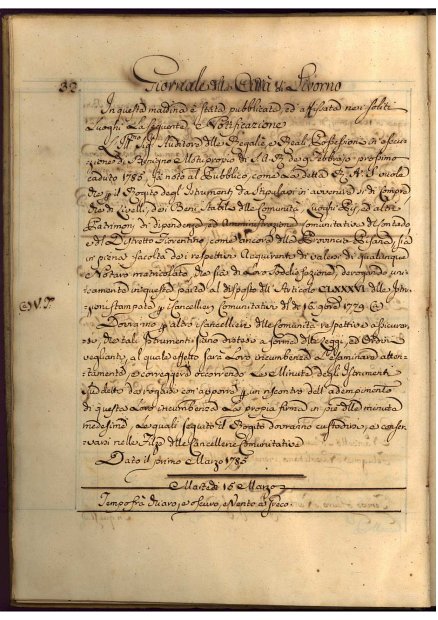 32 Giornale della Città di Livorno
In questa mattina è stata pubblicata, ed affissata nei soliti
Luoghi La seguente Notificazione
L'Ill.mo Sig. Auditore delle Regalie, e Reali Possessioni in esecu-
zione di Motuproprio di S.A.R. de 9 Febbraio prossimo
caduto 1785. fà noto al Pubblico, come La detta R.A.S. vuole
che il Rogito degl'Istrumenti da Stipularsi in avvenire di Compre
di Livelli, dei Beni Stabili delle Comunità, Luoghi Pij, ed altri
Patrimonj di dipendenza, ed Amministrazione Comunitativa del Contado
e del Distretto Fiorentino, come ancora della Provincia Pisana, sia
in piena facoltà dei respettivi Acquirenti di valersi di qualunque
Notaro matricolato, che sia di Loro Sodisfazione, derogando uni-
camente in questa parte al disposto dell'Articolo CLXXXVI delle Istru-
zioni stampate i Cancellieri Comunitativi de 16 1779
Dovranno altro i Cancellieri delle Comunità respettive assicurar-
si, che tali Istrumenti sieno distesi a forma delle Leggi, ed Ordini
veglianti, al quale effetto sarà Loro incumbenza di esaminare atten-
tamente, e correggere occorrendo Le Minute degl'Istrumenti
Suddetti da rogarsi con apporre in riscontro dell'adempimento
di questa Loro incumbenza La propria firma in piè della minuta
medesima, Le quali seguito il Rogito dovranno custodirsi, e conser-
varsi nelle Filze delle Cancellerie Comunitative
Dato il primo Marzo 1785
Martedì 15 Marzo
Tempo frà chiaro, e oscuro, e Vento a Greco